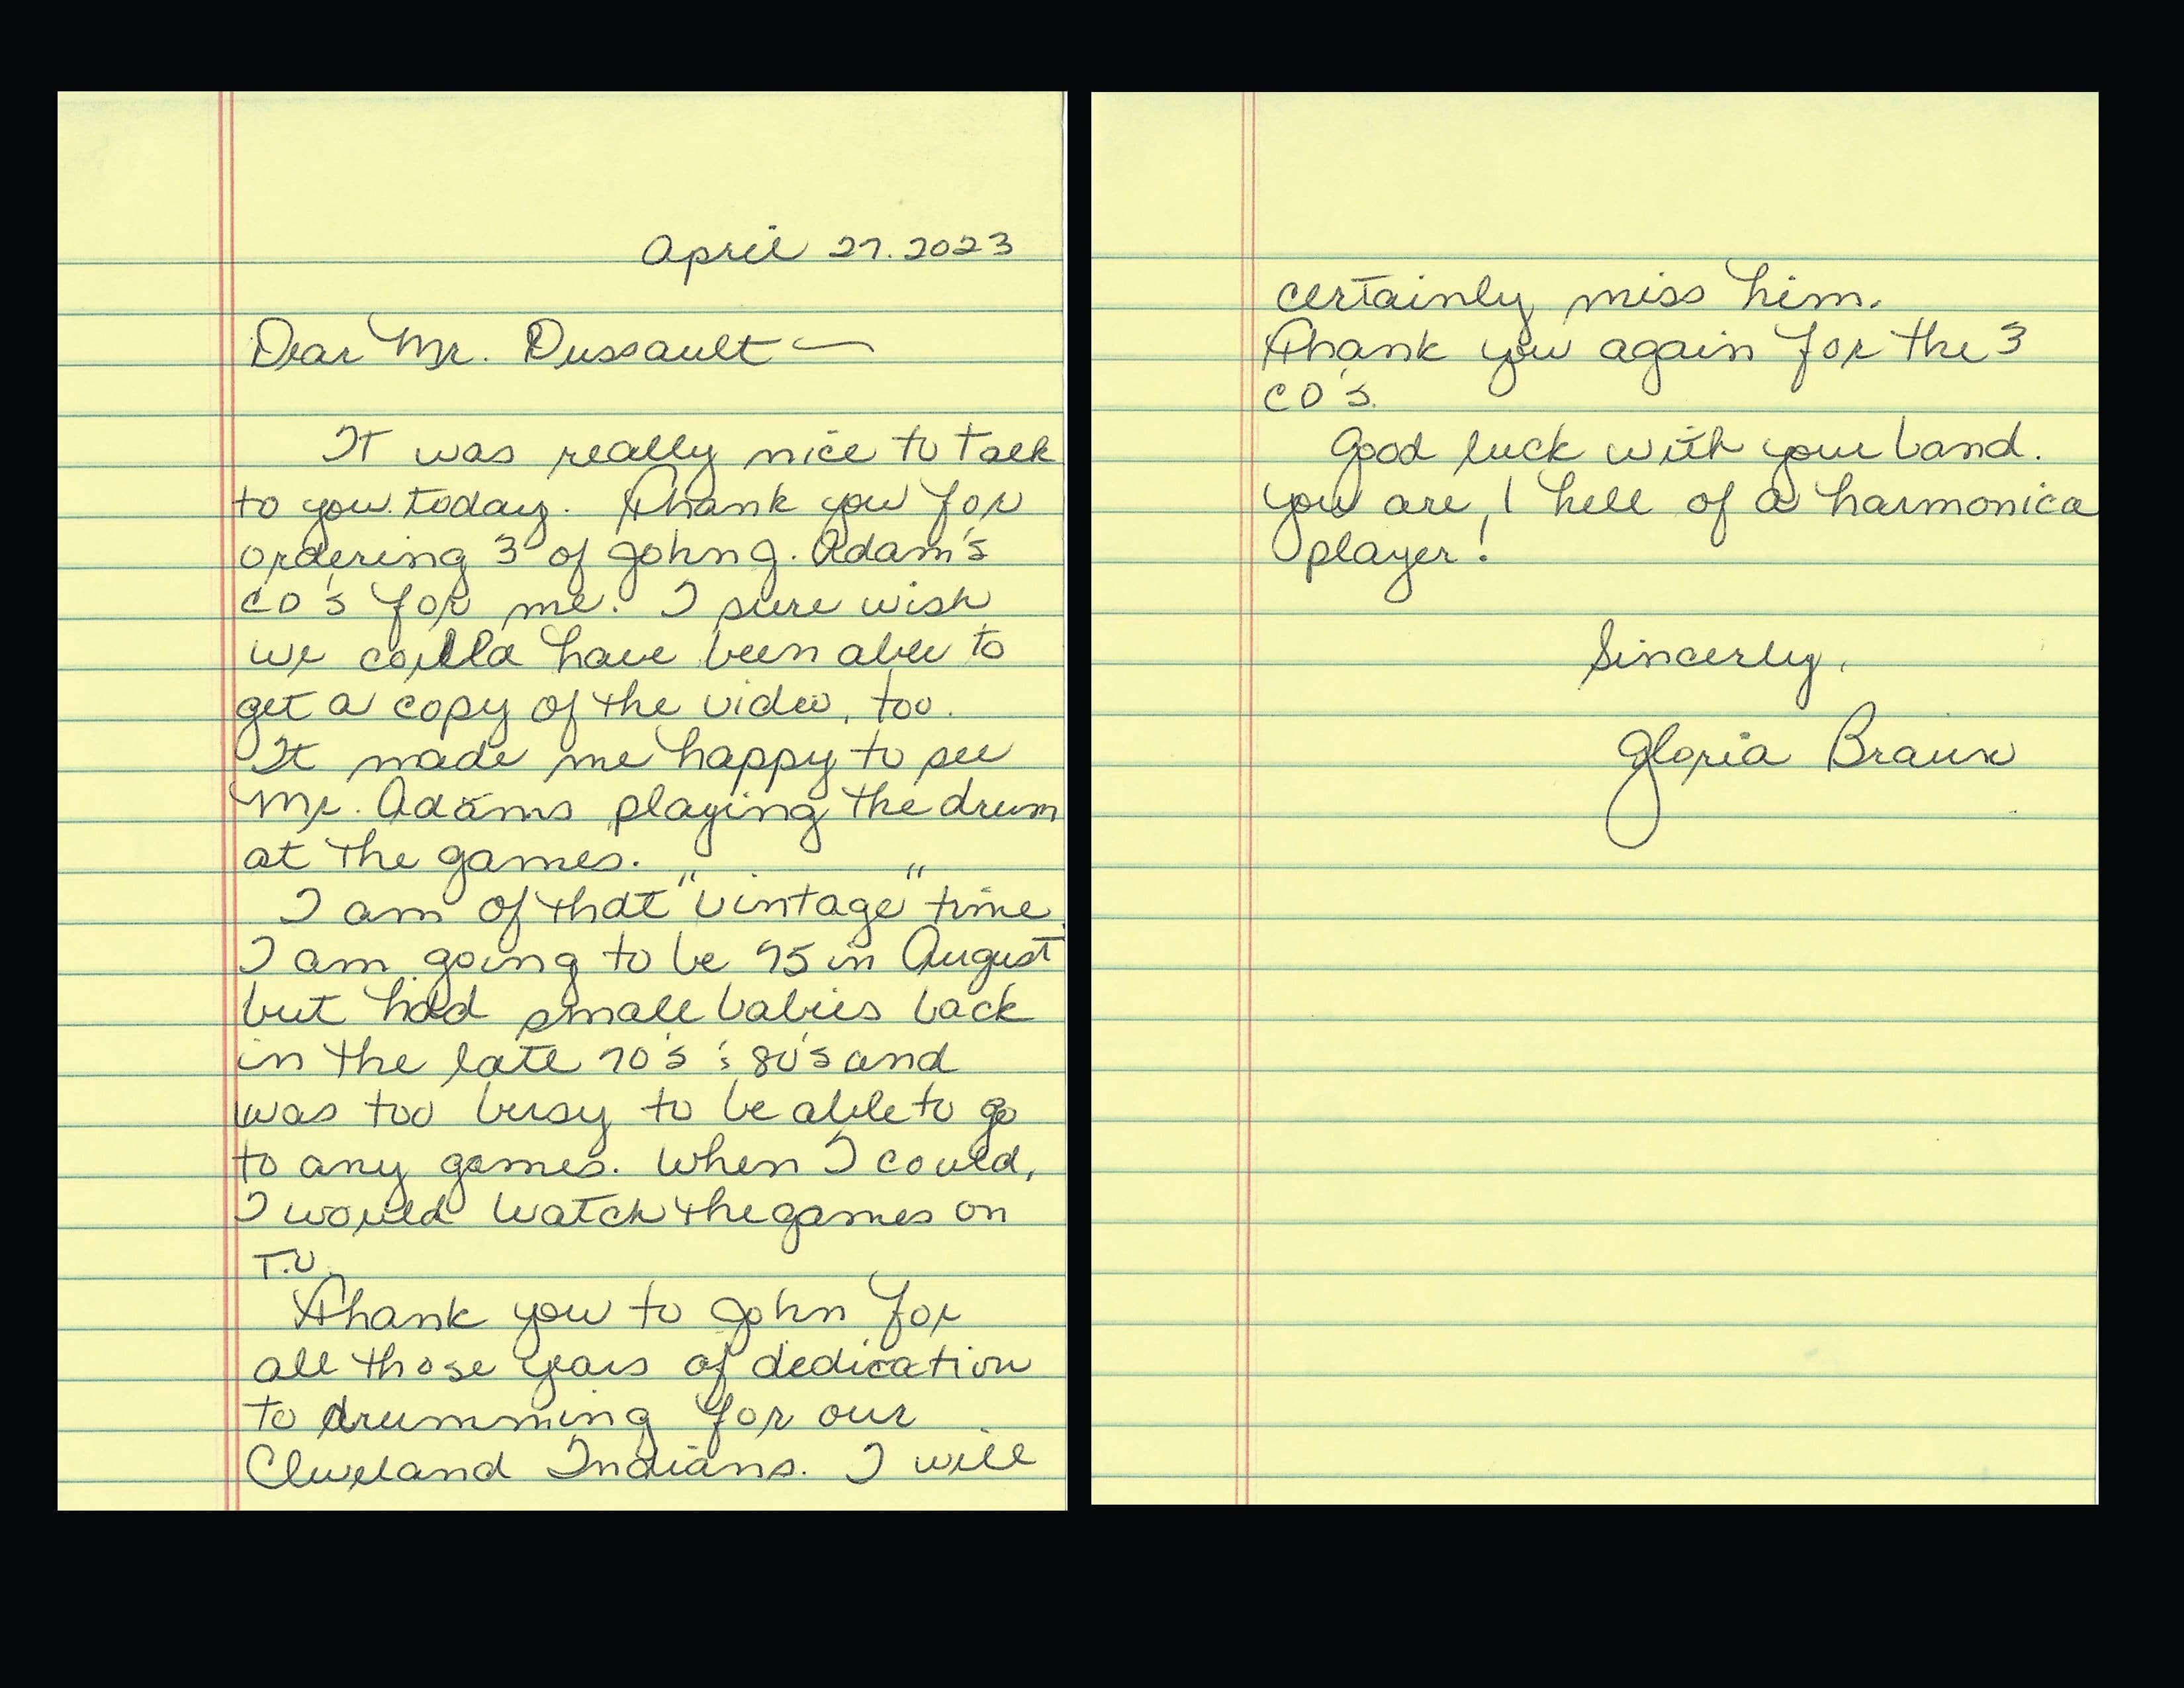 April 27. 2023
Dear Mr. Dussault —
It was really nice to talk
to you today. Thank you for
ordering 3 of John J. Adam's
CD's for me. I sure wish
we could have been able to
get a copy of the video, too.
It made me happy to see
Mr. Adams playing the drum
at the games.
I am of that "vintage" time.
I am going to be 75 in August
but had small babies back
in the late 70's & 80's and
was too busy to be able to go
to any games. When I could,
I would watch the games on
T.V.
Thank you to John for
all those years of dedication
to drumming for our
Cleveland Indians. I will
certainly miss him.
Thank you again for the 3
CD's.
Good luck with your band.
You are 1 hell of a harmonica
player!
Sincerly,
Gloria Braun